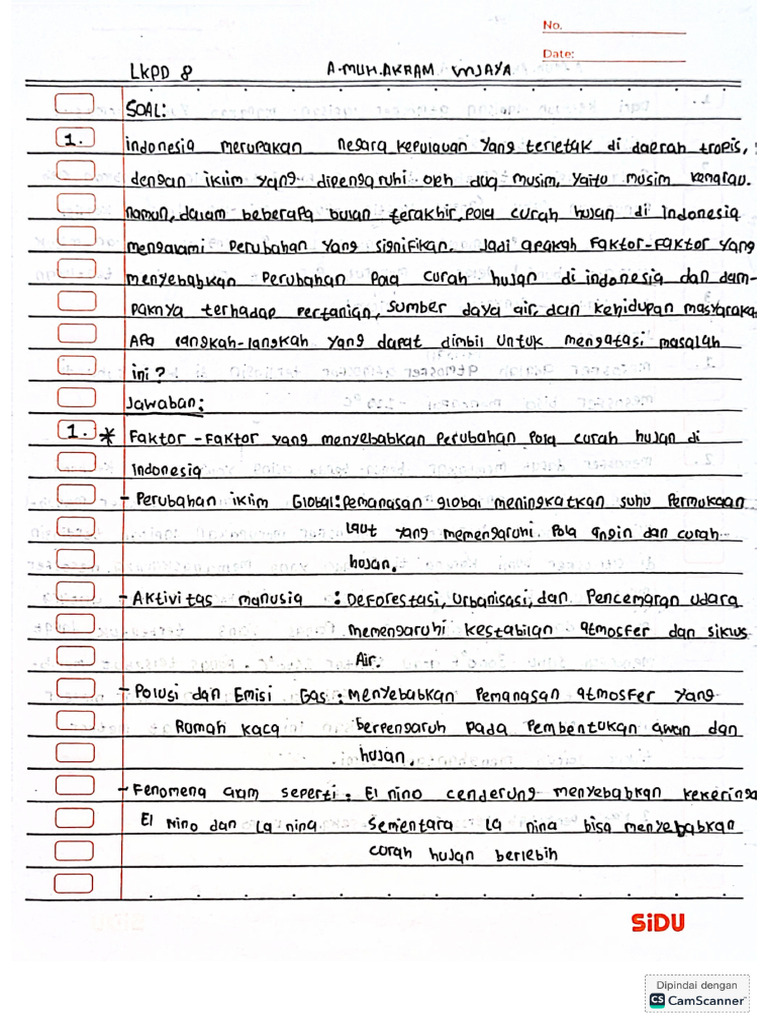 No.
Date:
LKPD 8 A.MUH.AKRAM WIJAYA
SOAL:
1. indonesia merupakan negara kepulauan yang terletak di daerah tropis,
dengan iklim yang dipengaruhi oleh dua musim, yaitu musim
namun, dalam beberapa bulan terakhir, pola curah hujan di Indonesia
mengalami perubahan yang signifikan. Jadi apakah Faktor-Faktor yang
menyebabkan Perubahan Pola curah hujan di indonesia dan dam-
paknya terhadap Pertanian, sumber daya air, dan kehidupan masyaraka
APa langkah-langkah yang dapat dimbil untuk mengatasi masalah
ini?
Jawaban:
1. * Faktor - Faktor yang menyebabkan Perubahan Pola curah hujan di
Indonesia
- Perubahan iklim Global: Pemanasan global meningkatkan suhu Permukaan
laut yang memengaruhi Pola angin dan curah
hujan.
- Aktivitas manusia : Deforestasi, Urbanisasi, dan Pencemaran Udara
memengaruhi kestabilan atmosfer dan siklus
Air.
- Polusi dan Emisi Gas : menyebabkan Pemanasan atmosfer yang
Rumah kaca berpengaruh Pada Pembentukan awan dan
hujan.
- Fenomena alam seperti : El nino cenderung menyebabkan kekeringa
El Nino dan La nina sementara la nina bisa menyebabkan
curah hujan berlebih
SiDU
Dipindai dengan
CS CamScanner